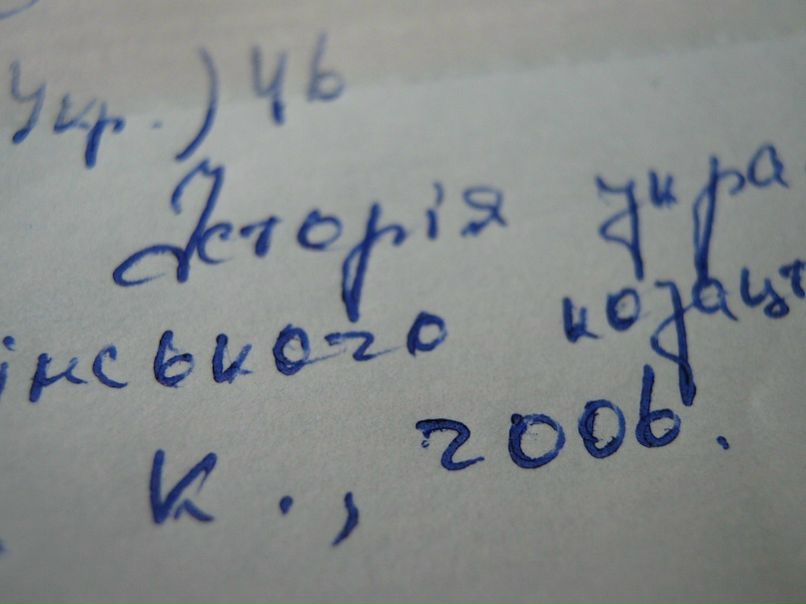 Укр.) 46
Історія укра
їнського козацт
К., 2006.